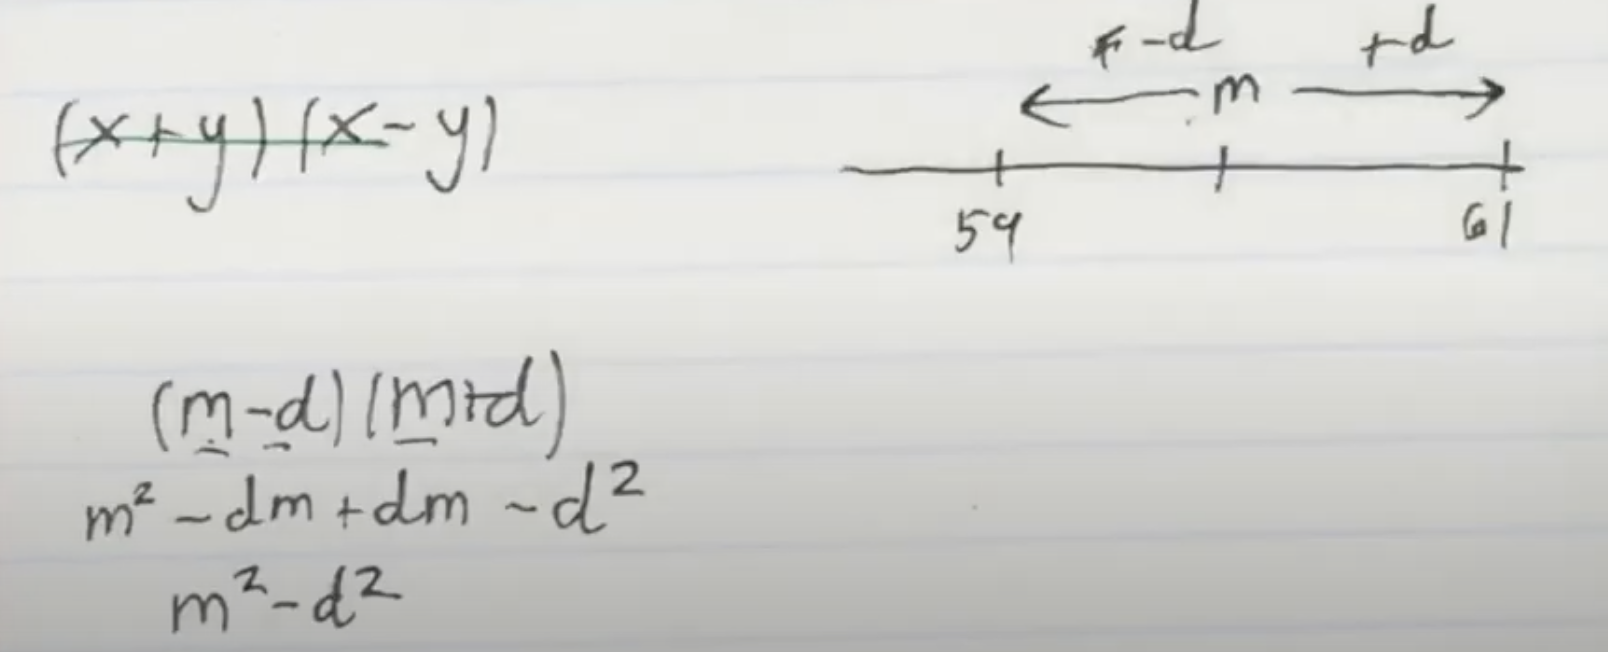 (x+y)(x-y)
← -d +d
← m →
59 61
(m-d)(m+d)
m² - dm + dm - d²
m² - d²